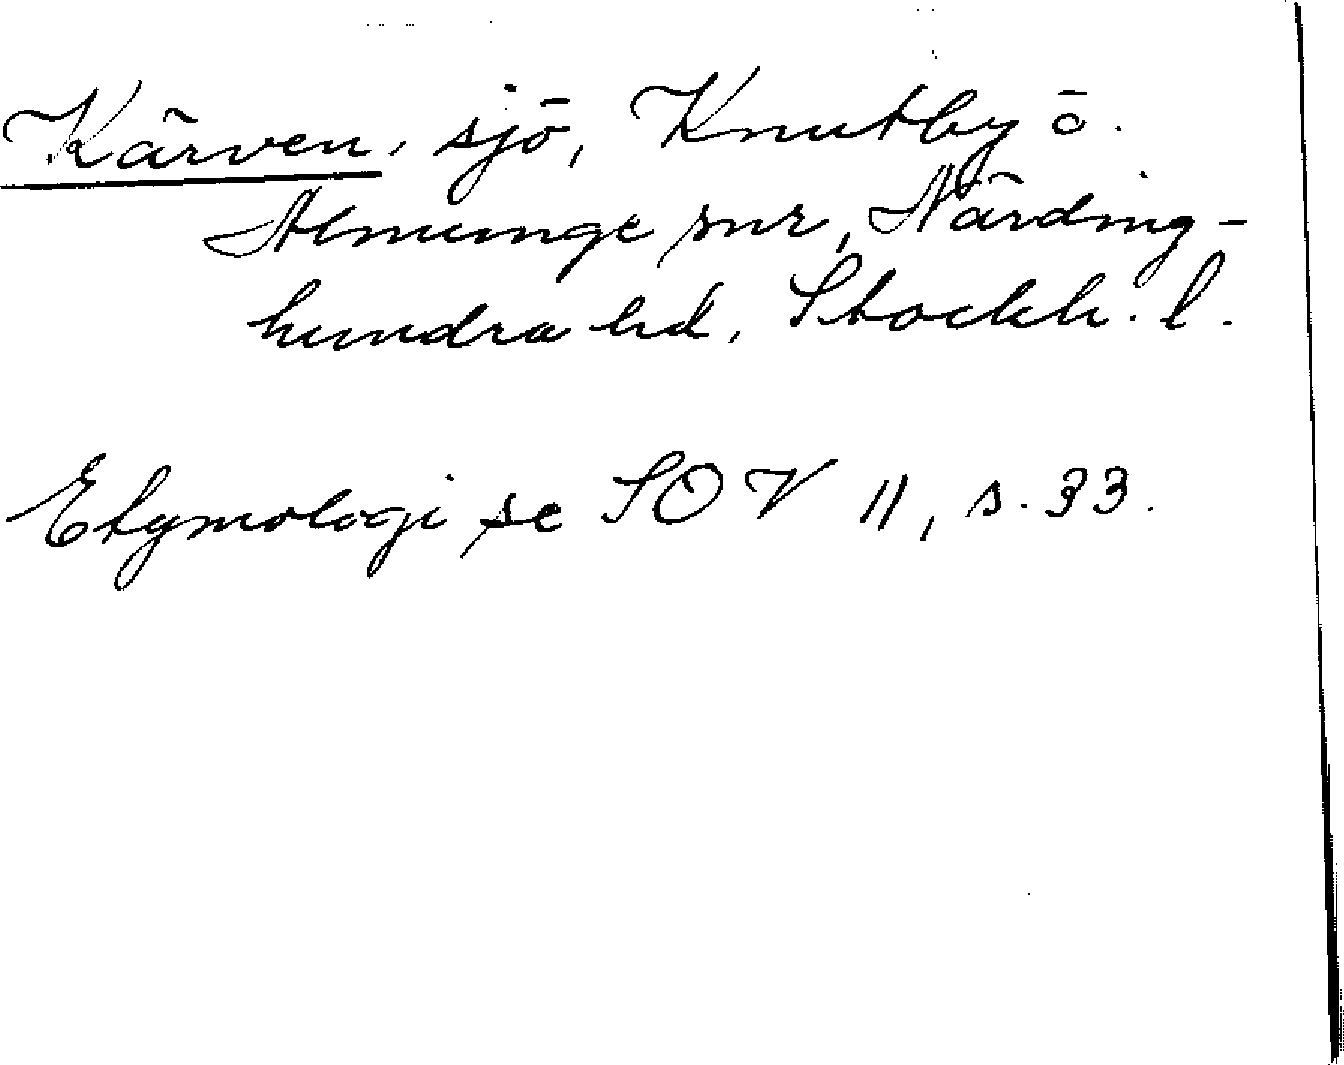 Kärven, sjö, Knutby o.
Almunge snr, Närding-
hundra hd, Stockh. l.
Etymologi se SOV 11, s. 33.